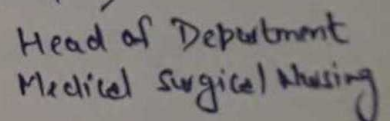 Head of Department
Medical Surgical Nursing